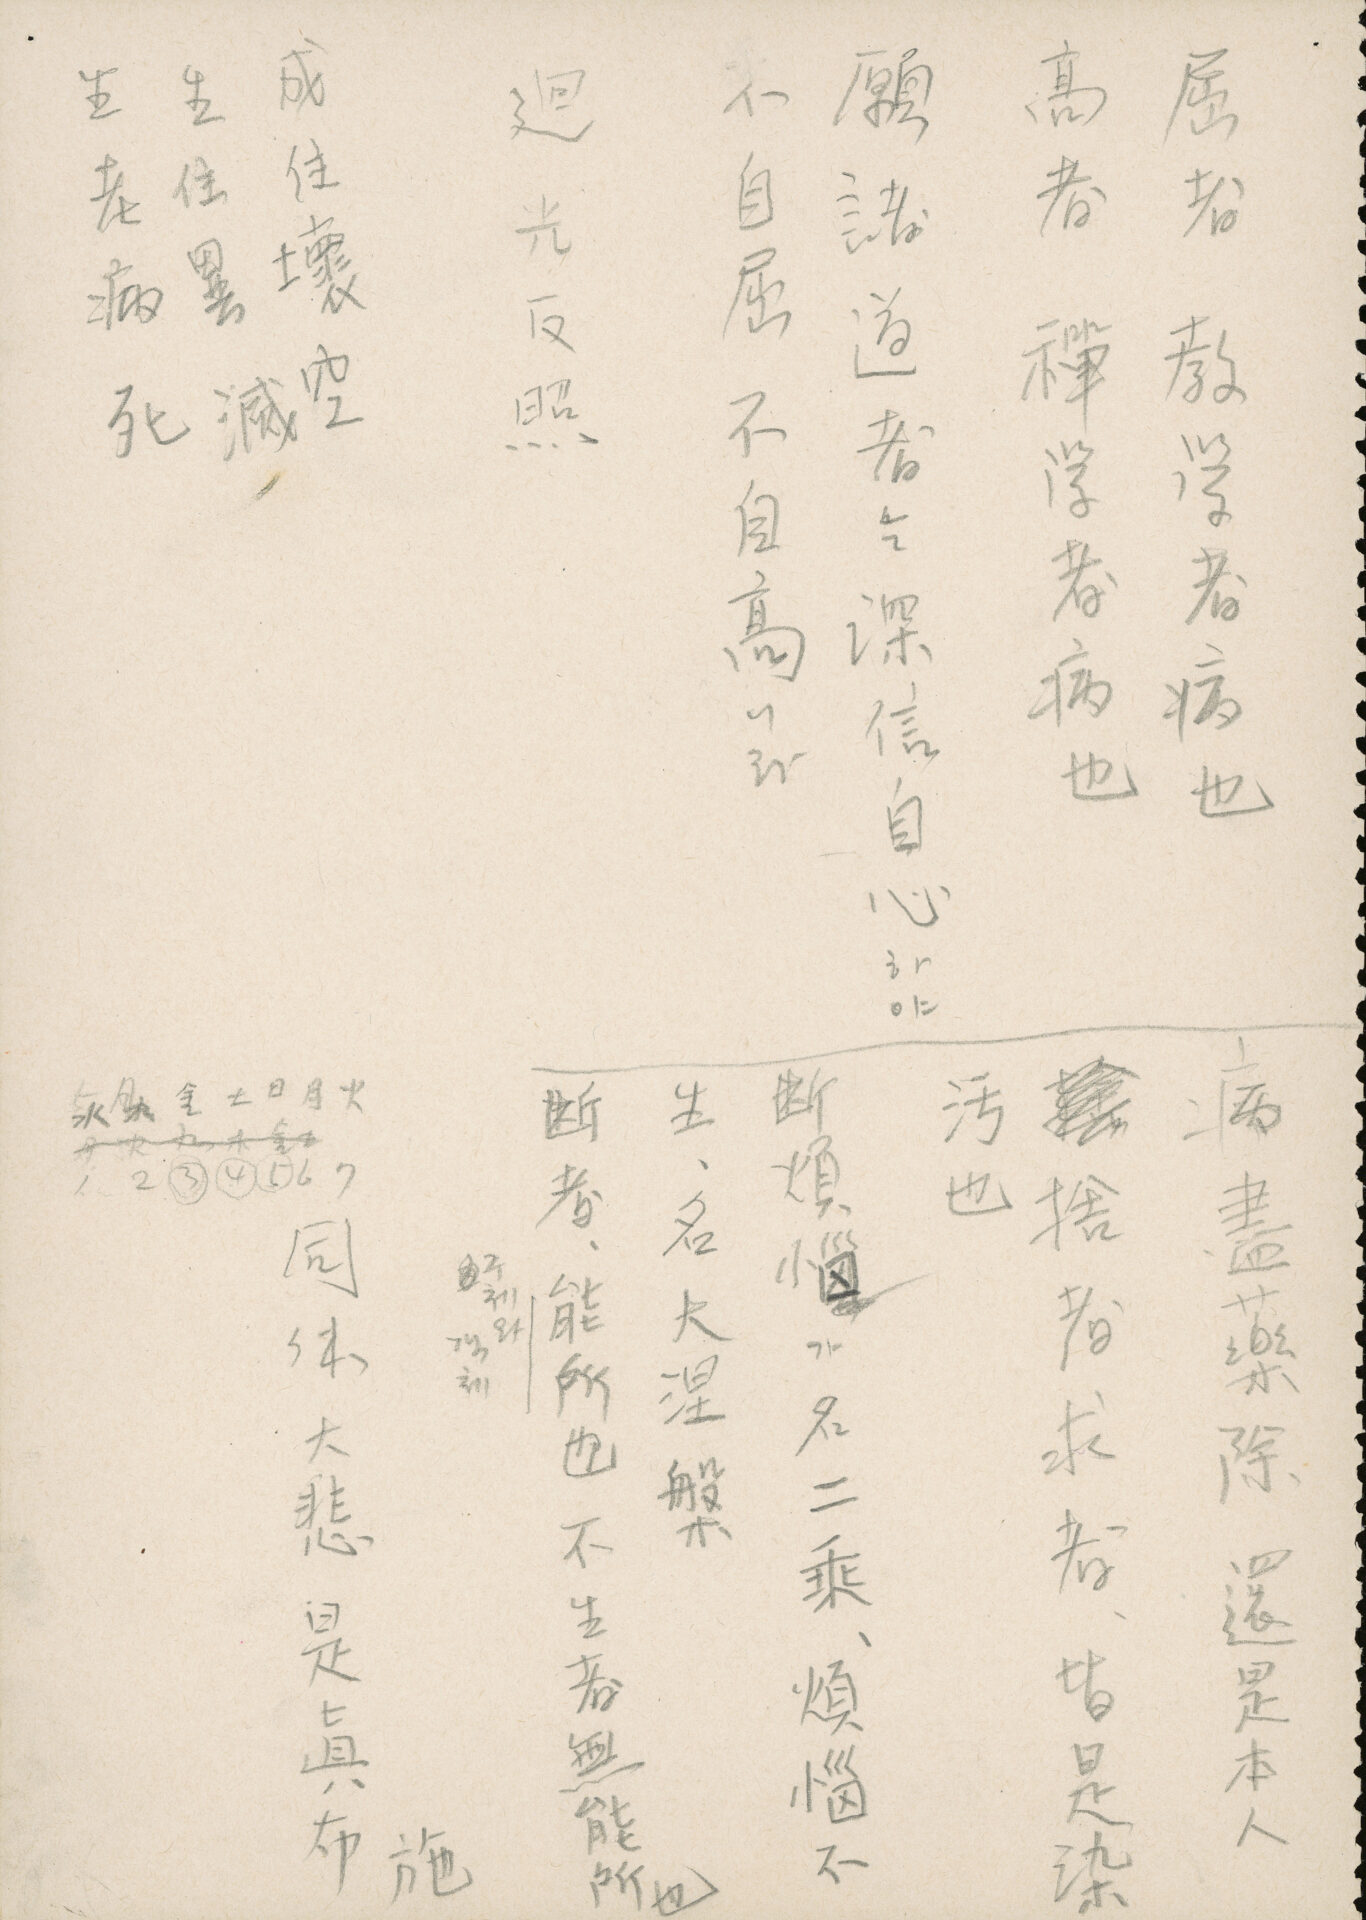 屈者 教学者病也
高者 禪学者病也
願諸道者는深信自心하야
不自屈不自高니라
廻光反照
成住壞空
生住異滅
生老病死
病盡薬除 還是本人
捨者求者、皆是染
汚也
断煩惱가名二乘、煩惱不
生、名大涅槃
断者、能所也不生者無能所也
주체와
객체
同体大悲是眞布施
金土日月火
1 2 3 4 5 6 7